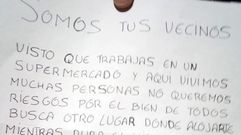 SOMOS TUS VECINOS
VISTO QUE TRABAJAS EN UN
SUPERMERCADO Y AQUI VIVIMOS
MUCHAS PERSONAS NO QUEREMOS
RIESGOS POR EL BIEN DE TODOS
BUSCA OTRO LUGAR DONDE ALOJARTE
MIENTRAS DURA EL